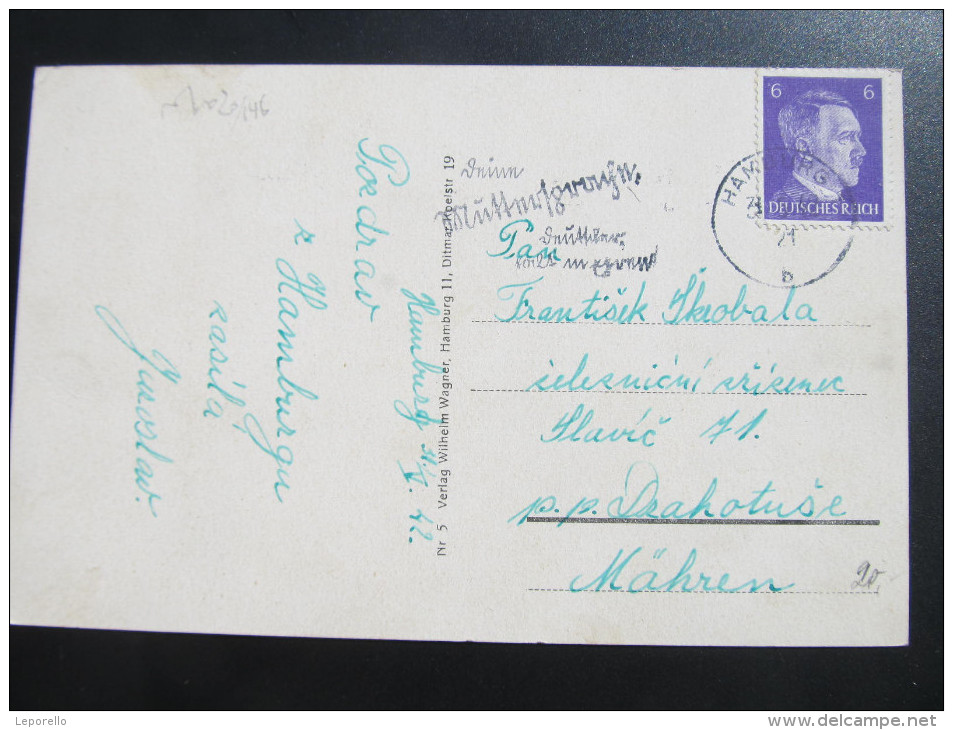 Pozdrav
z Hamburgu
zasílá
Jaroslav.
Hamburg
42.
Nr 5 Verlag Wilhelm Wagner, Hamburg 11, Ditmar-Koelstr 19
Deine
Muttersprache.
HAMBURG
21
b
6 6
DEUTSCHES REICH
Pan
František Škrobala
železniční zřízenec
Slavíč 71.
p.p. Drahotuše
Mähren
20,
Leporello
www.delcampe.net